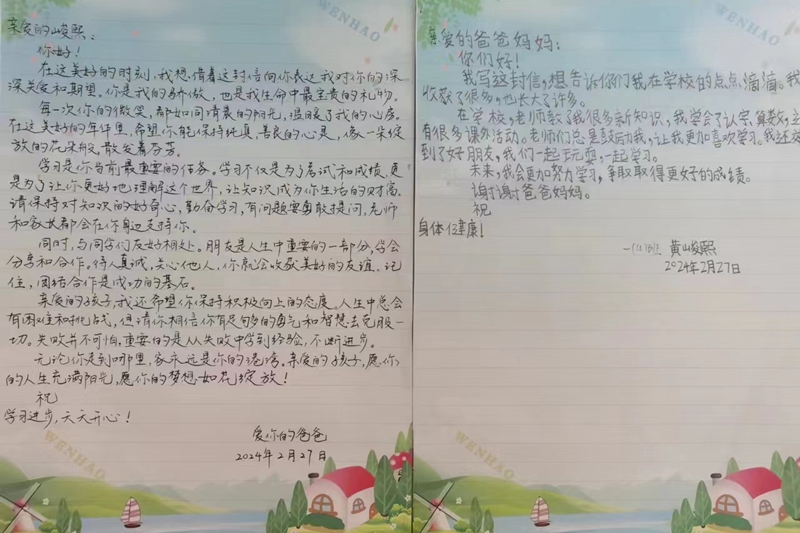 亲爱的峻熙：
你好！
在这美好的时刻，我想借着这封信向你表达我对你的深
深关爱和期望。你是我的骄傲，也是我生命中最宝贵的礼物。
每一次你的微笑，都如同清晨的阳光，温暖了我的心房。
在这美好的年华里，希望你能保持纯真、善良的心灵，像一朵绽
放的花朵般，散发着芬芳。
学习是你当前最重要的任务。学习不仅是为了考试和成绩，更
是为了让你更好地理解这个世界，让知识成为你生活的财富。
请保持对知识的好奇心，勤奋学习，有问题要勇敢提问，老师
和家长都会在你身边支持你。
同时，与同学们友好相处。朋友是人生中重要的一部分，学会
分享和合作。待人真诚，关心他人，你就会收获美好的友谊。记
住，团结合作是成功的基石。
亲爱的孩子，我还希望你保持积极向上的态度。人生中总会
有困难和挑战，但请你相信你有足够的勇气和智慧去克服一
切。失败并不可怕，重要的是从失败中学到经验，不断进步。
无论你走到哪里，家永远是你的港湾。亲爱的孩子，愿你
的人生充满阳光，愿你的梦想如花绽放！
祝
学习进步，天天开心！
爱你的爸爸
2024年2月27日
WENHAO
WENHAO
亲爱的爸爸妈妈：
你们好！
我写这封信，想告诉你们我在学校的点点滴滴。我
收获了很多，也长大了许多。
在学校，老师教了我很多新知识，我学会了认字、算数，
有很多课外活动。老师们总是鼓励我，让我更加喜欢学习。我还交
到了好朋友，我们一起玩耍，一起学习。
未来，我会更加努力学习，争取取得更好的成绩。
谢谢爸爸妈妈。
祝
身体健康！
黄峻熙
2024年2月27日
WENHAO
WENHAO